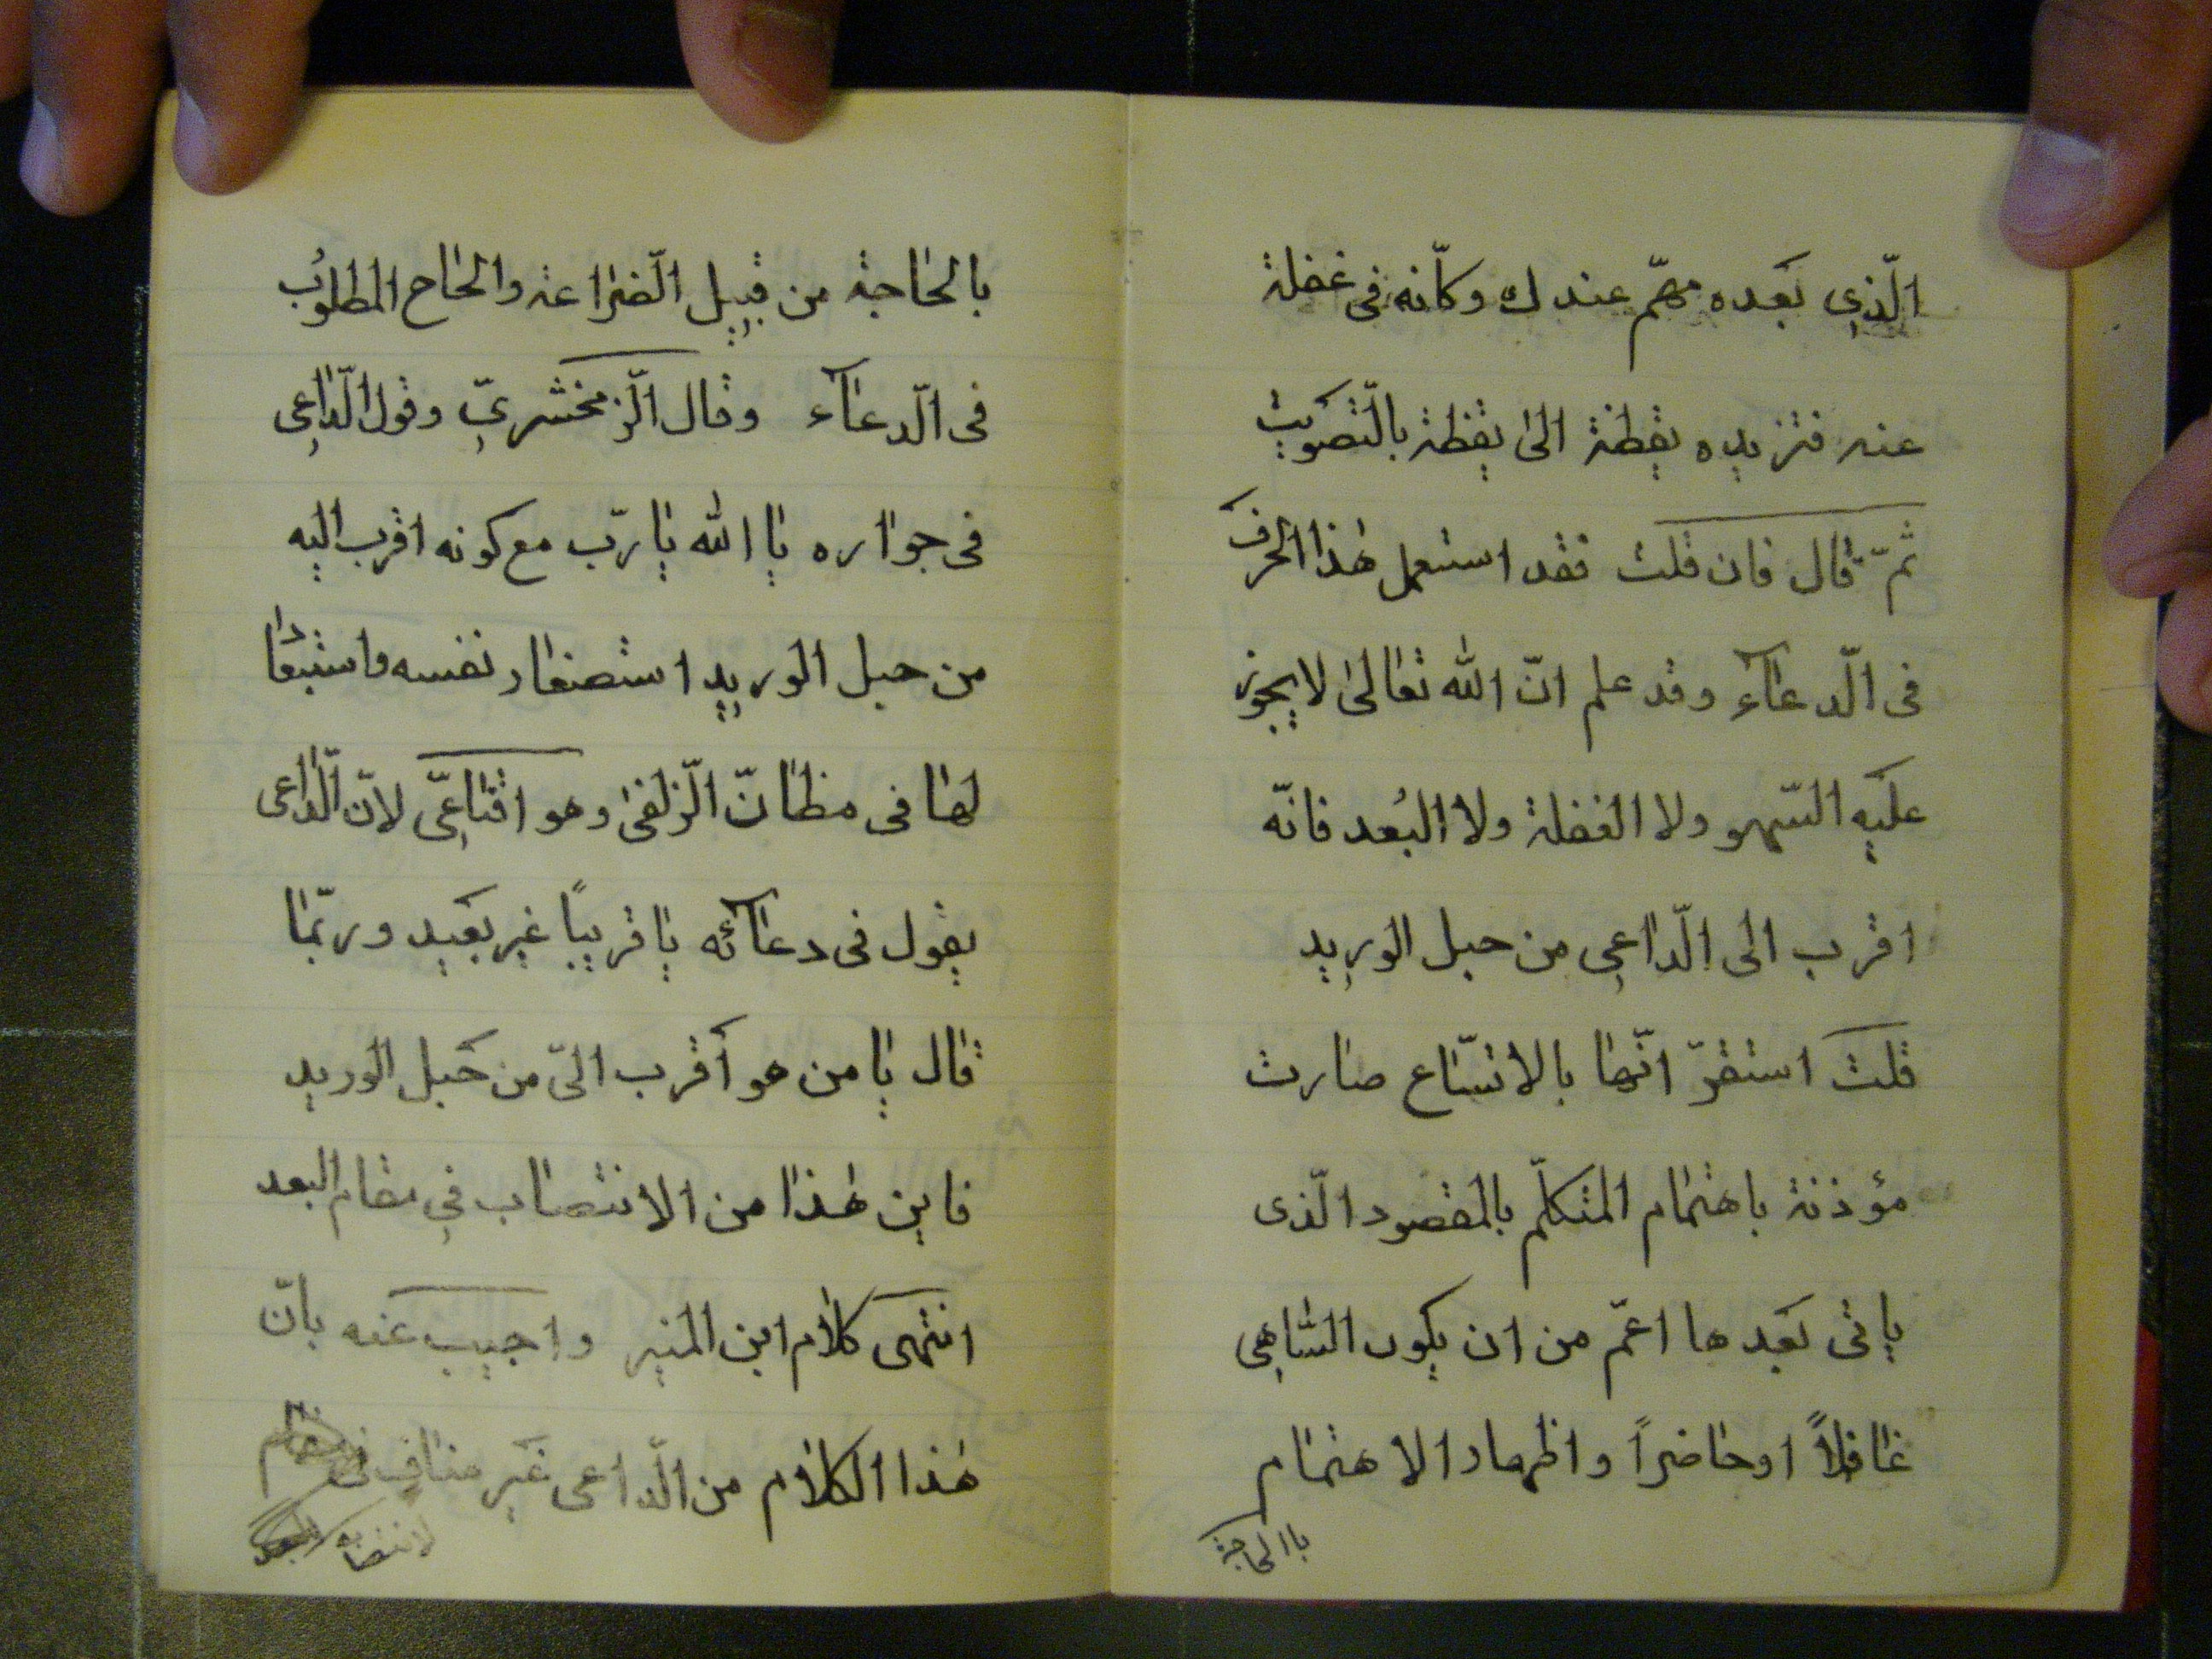 الّذي بَعده مهمّ عندك وكأنّه في غفلة
عنه فتزيده يقظة الى يقظة بالتّصويت
ثمّ قال فان قلت فقد استعمل هٰذا الحرف
فى الّدعآء وقد علم انّ الله تعالىٰ لا يجوز
عليه السّهو ولا الغفلة ولا البُعد فانّه
اقرب الى الّداعى من حبل الوريد
قلت استقرّ انّها بالاتّساع صارت
مؤذنة باهتمام المتكلّم بالمقصود الّذى
ياتى بَعدها اعمّ من ان يكون السّاهى
غافلاً او حاضراً واظهار الاهتمام
باالحاجة
بالحاجة من قبيل الّضراعة والحاح المطلوُب
فى الّدعآء وقال الّزمخشريّ وقول الّداعى
فى جواره يا الله يا ربّ مع كونه اقرب اليه
من حبل الوريد استصغار نفسه واستبعادا
لها فى مظانّ الّزلفىٰ وهو اقناعىّ لانّ الّداعى
يقول فى دعآئه يا قريبًا غير بعَيد وربّما
قال يا من هو أقرب الىّ من حَبل الوريد
فاين هٰذا من الانتصاب في مقام البعد
انتهى كلام ابن المنير واجيب عنه بانّ
هٰذا الكلام من الّداعى غَير منافٍ
لانتصابه